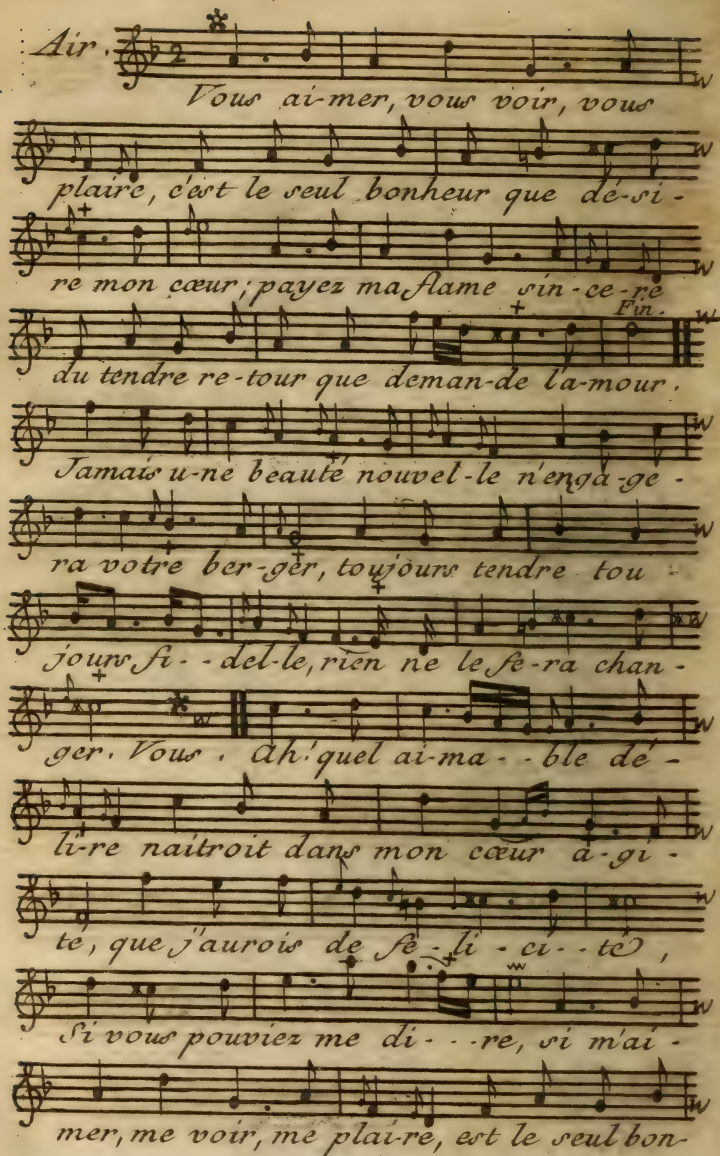 Air.
2
Vous ai-mer, vous voir, vous
plaire, c'est le seul bonheur que dé-si-
re mon cœur; payez ma flame sin-ce-re
Fin.
du tendre re-tour que deman-de l'a-mour.
Jamais u-ne beauté nouvel-le n'enga-ge-
ra votre ber-ger, toujours tendre tou-
jours fi--del-le, rien ne le fe-ra chan-
ger. Vous. Ah! quel ai-ma--ble dé-
li-re naitroit dans mon cœur a-gi-
té, que j'aurois de fé-li-ci--té,
Si vous pouviez me di---re, si m'ai-
mer, me voir, me plai-re, est le seul bon-